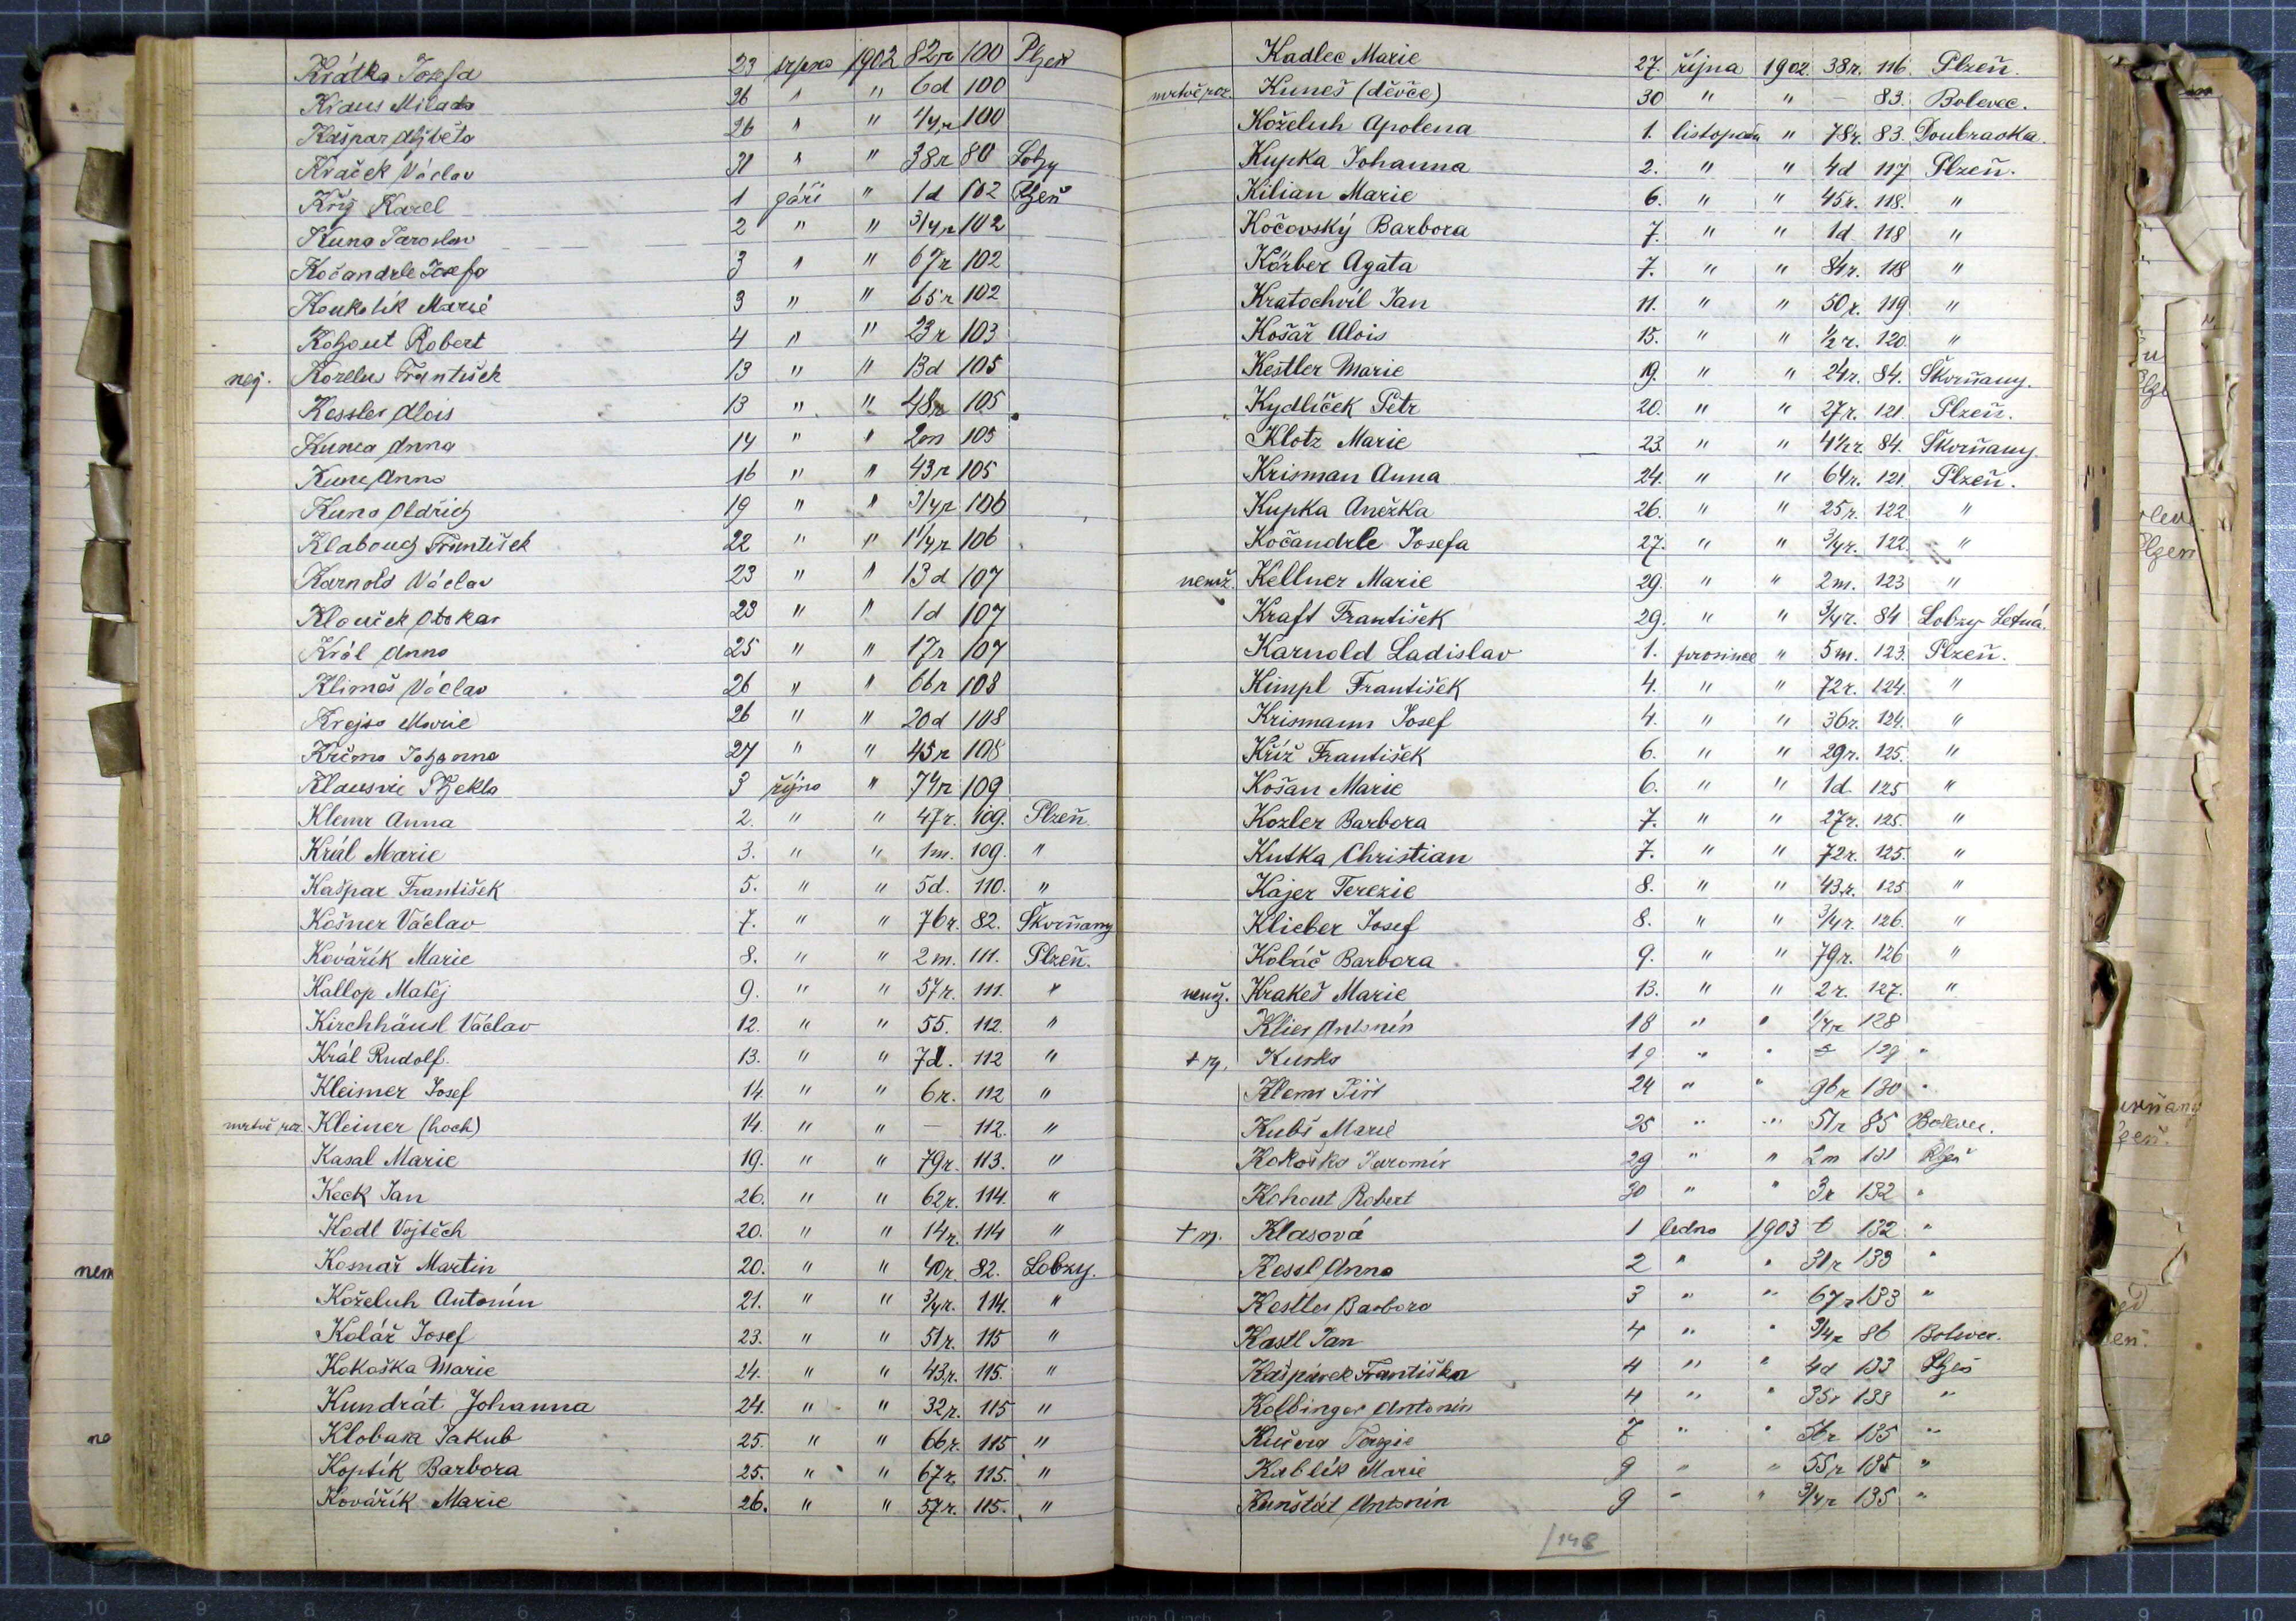 Krátká Josefa 23 srpna 1902 82r 100 Plzeň
Kraus Milada 26 " " 6d 100
Kašpar Alžběta 26 " " 1/4r 100
Kraček Václav 31 " " 38r 80 Lobzy
Kříž Karel 1 září " 1d 102 Plzeň
Kuna Jaroslav 2 " " 3/4r 102
Kočandrle Josefa 3 " " 67r 102
Koukolík Marie 3 " " 65r 102
Kohout Robert 4 " " 23r 103
nej. Korelus František 13 " " 13d 105
Kessler Alois 13 " " 48r 105
Kunca Anna 14 " " 2m 105
Kunc Anna 16 " " 43r 105
Kuna Oldřich 19 " " 3/4r 106
Klabouch František 22 " " 1 1/4r 106
Karnold Václav 23 " " 13d 107
Klouček Otokar 23 " " 1d 107
Král Anna 25 " " 17r 107
Klimeš Václav 26 " " 66r 108
Krejsa Marie 26 " " 20d 108
Krčma Johanna 27 " " 45r 108
Thekla 3 října " 74r 109
Klemr Anna 2. " " 47r. 109. Plzeň.
Král Marie 3. " " 1m. 109. "
Kašpar František 5. " " 5d. 110. "
Košner Václav 7. " " 76r. 82. Škvrňany
Kovářík Marie 8. " " 2m. 111. Plzeň.
Kallop Matěj 9. " " 57r. 111. "
Kirchhäusl Václav 12. " " 55. 112. "
Král Rudolf. 13. " " 7d. 112 "
Kleisner Josef 14. " " 6r. 112 "
mrtvě roz. Kleiner (hoch) 14. " " — 112. "
Kasal Marie 19. " " 79r. 113. "
Keck Jan 26. " " 62r. 114. "
Kodl Vojtěch 20. " " 14r. 114 "
nem Kosnař Martin 20. " " 40r. 82. Lobzy.
Koželuh Antonín 21. " " 3/4r. 114. "
Kolář Josef 23. " " 51r. 115 "
Kokoška Marie 24. " " 43r. 115. "
Kundrát Johanna 24. " " 32r. 115 "
ne Klobasa Jakub 25. " " 66r. 115 "
Koptík Barbora 25. " " 67r. 115. "
Kovářík Marie 26. " " 57r. 115. "
Kadlec Marie 27. října 1902. 38r. 116. Plzeň.
mrtvě roz. Kuneš (děvče) 30 " " — 83. Bolevec.
Koželuh Apolena 1. listopadu " 78r. 83. Doubravka.
Kupka Johanna 2. " " 4d 117 Plzeň.
Kilian Marie 6. " " 45r. 118. "
Kočovský Barbora 7. " " 1d 118 "
Körber Agata 7. " " 84r. 118 "
Kratochvíl Jan 11. " " 50r. 119 "
Košař Alois 15. " " 1/2r. 120. "
Kestler Marie 19. " " 24r. 84. Škvrňany.
Kydlíček Petr 20. " " 27r. 121. Plzeň.
Klotz Marie 23. " " 4 1/2r 84. Škvrňany.
Krisman Anna 24. " " 64r. 121. Plzeň.
Kupka Anežka 26. " " 25r. 122. "
Kočandrle Josefa 27. " " 3/4r. 122. "
nemž. Kellner Marie 29. " " 2m. 123 "
Kraft František 29. " " 3/4r. 84 Lobzy Letná.
Karnold Ladislav 1. prosince " 5m. 123. Plzeň.
Kimpl František 4. " " 72r. 124. "
Krismann Josef 4. " " 36r. 124. "
Kříž František 6. " " 29r. 125. "
Košan Marie 6. " " 1d. 125 "
Kozler Barbora 7. " " 27r. 125. "
Kutka Christian 7. " " 72r. 125. "
Kajer Terezie 8. " " 43r. 125 "
Klieber Josef 8. " " 3/4r. 126. "
Kobáč Barbora 9. " " 79r. 126 "
nemž. Krakeš Marie 13. " " 2r. 127. "
Klier Antonín 18 " " 1/4r 128
Kurka 19 " " 129 "
Klemr Jiří 24 " " 96r 130 "
Kubš Marie 25 " " 51r 85 Bolevec.
Kokoška Jaromír 29 " " 2m 131 Plzeň
Kohout Robert 30 " " 3r 132 "
Klasová 1 ledna 1903 132 "
Kessl Anna 2 " " 31r 133 "
Kestler Barbora 3 " " 67r 133 "
Kastl Jan 4 " " 3/4r 86 Bolevec.
Kašpárek Františka 4 " " 4d 133 Plzeň
Kolbinger Antonín 4 " " 35r 133 "
Kučera Terezie 7 " " 135 "
Kablík Marie 9 " " 55r 135 "
Kunštát Antonín 9 " " 3/4r 135 "